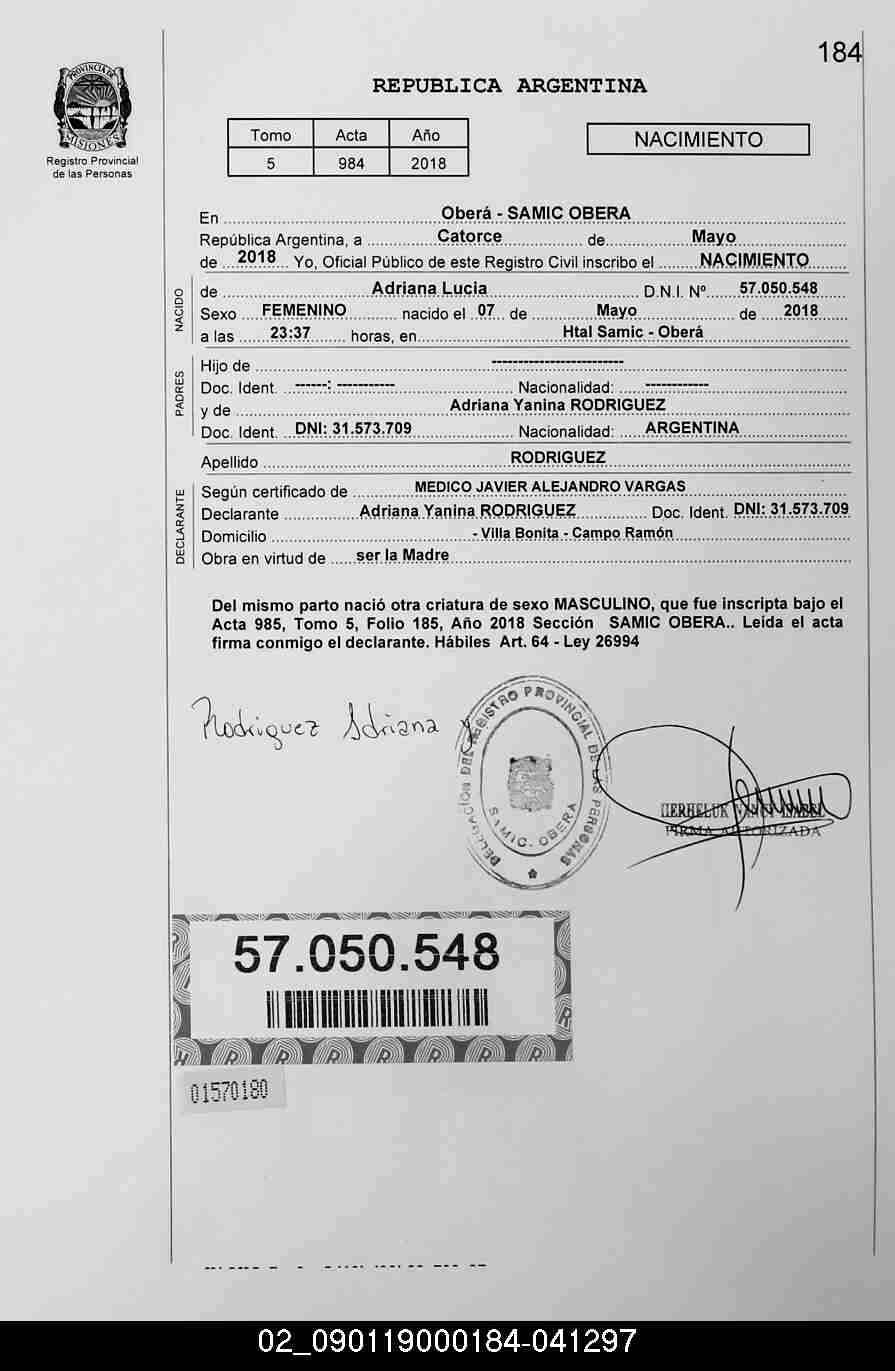 184
PROVINCIA DE
MISIONES
Registro Provincial
de las Personas
REPUBLICA ARGENTINA
Tomo Acta Año
5 984 2018
NACIMIENTO
En Oberá - SAMIC OBERA
República Argentina, a Catorce de Mayo
de 2018 Yo, Oficial Público de este Registro Civil inscribo el NACIMIENTO
NACIDO
de Adriana Lucia D.N.I. Nº 57.050.548
Sexo FEMENINO nacido el 07 de Mayo de 2018
a las 23:37 horas, en Htal Samic - Oberá
PADRES
Hijo de -------------------------
Doc. Ident. ------: ----------- Nacionalidad: ------------
y de Adriana Yanina RODRIGUEZ
Doc. Ident. DNI: 31.573.709 Nacionalidad: ARGENTINA
Apellido RODRIGUEZ
DECLARANTE
Según certificado de MEDICO JAVIER ALEJANDRO VARGAS
Declarante Adriana Yanina RODRIGUEZ Doc. Ident. DNI: 31.573.709
Domicilio - Villa Bonita - Campo Ramón
Obra en virtud de ser la Madre
Del mismo parto nació otra criatura de sexo MASCULINO, que fue inscripta bajo el
Acta 985, Tomo 5, Folio 185, Año 2018 Sección SAMIC OBERA.. Leida el acta
firma conmigo el declarante. Hábiles Art. 64 - Ley 26994
Rodriguez Adriana Y
DELEGACIÓN DEL REGISTRO PROVINCIAL DE LAS PERSONAS
SAMIC. OBERA
ISABEL
FIRMA AUTORIZADA
57.050.548
01570180
02_090119000184-041297